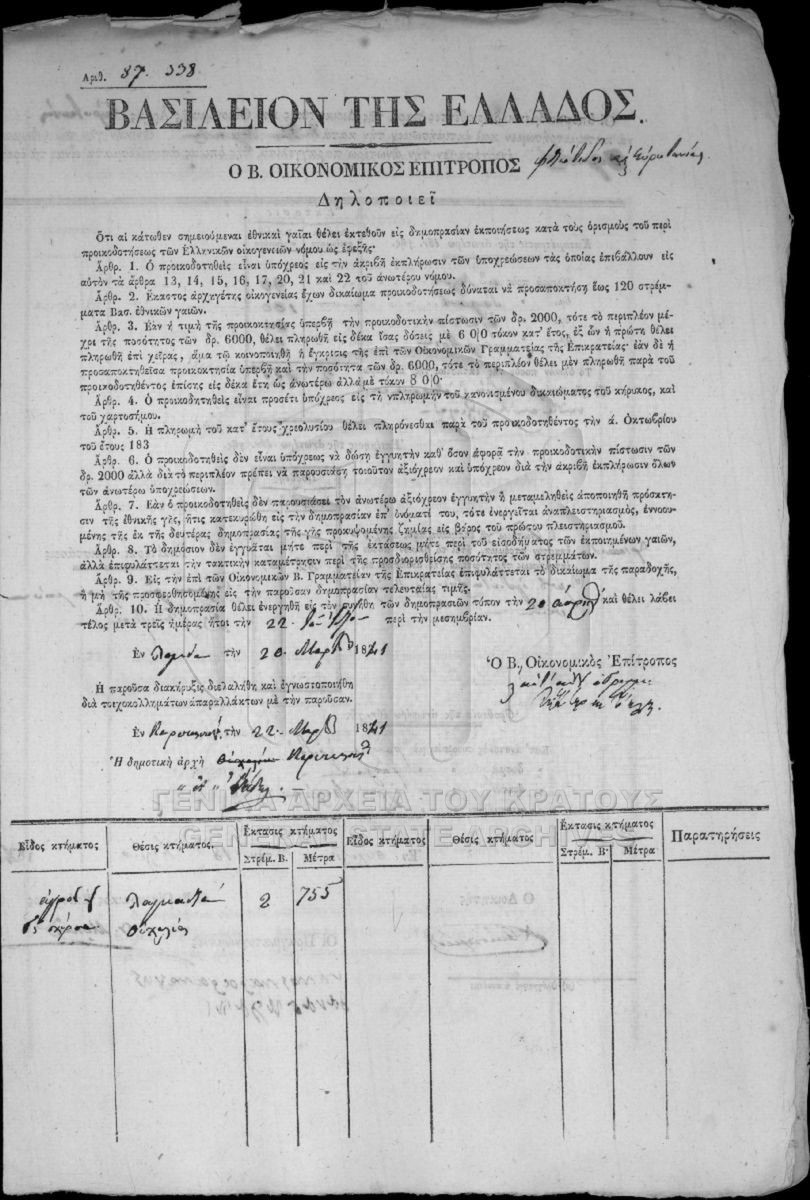 Αριθ. 87. 338
ΒΑΣΙΛΕΙΟΝ ΤΗΣ ΕΛΛΑΔΟΣ.
Ο Β. ΟΙΚΟΝΟΜΙΚΟΣ ΕΠΙΤΡΟΠΟΣ Φθιώτιδος κ Ευρυτανίας.
Δηλοποιεῖ
Ὅτι αἱ κάτωθεν σημειούμεναι ἐθνικαὶ γαῖαι θέλει ἐκτεθοῦν εἰς δημοπρασίαν ἐκποιήσεως κατὰ τοὺς ὁρισμοὺς τοῦ περὶ
προικοδοτήσεως τῶν Ἑλληνικῶν οἰκογενειῶν νόμου ὡς ἐφεξῆς·
Ἀρθρ. 1. Ὁ προικοδοτηθεὶς εἶναι ὑπόχρεος εἰς τὴν ἀκριβῆ ἐκπλήρωσιν τῶν ὑποχρεώσεων τὰς ὁποίας ἐπιβάλλουν εἰς
αὐτὸν τὰ ἄρθρα 13, 14, 15, 16, 17, 20, 21 καὶ 22 τοῦ ἀνωτέρω νόμου.
Ἀρθρ. 2. Ἕκαστος ἀρχηγέτης οἰκογενείας ἔχων δικαίωμα προικοδοτήσεως δύναται νὰ προσαποκτήση ἕως 120 στρέμ-
ματα Βασ. ἐθνικῶν γαιῶν.
Ἀρθρ. 3. Ἐὰν ἡ τιμὴ τῆς προικοκτησίας ὑπερβῇ τὴν προικοδοτικὴν πίστωσιν τῶν δρ. 2000, τότε τὸ περιπλέον μέ-
χρι τῆς ποσότητος τῶν δρ. 6000, θέλει πληρωθῆ εἰς δέκα ἴσας δόσεις μὲ 6 0|0 τόκον κατ' ἔτος, ἐξ ὧν ἡ πρώτη θέλει
πληρωθῆ ἐπὶ χεῖρας, ἅμα τῷ κοινοποιηθῇ ἡ ἔγκρισις τῆς ἐπὶ τῶν Οἰκονομικῶν Γραμματείας τῆς Ἐπικρατείας· ἐὰν δὲ ἡ
προσαποκτηθεῖσα προικοκτησία ὑπερβῇ καὶ τὴν ποσότητα τῶν δρ. 6000, τότε τὸ περιπλέον θέλει μὲν πληρωθῆ παρὰ τοῦ
προικοδοτηθέντος ἐπίσης εἰς δέκα ἔτη ὡς ἀνωτέρω ἀλλὰ μὲ τόκον 8 0|0·
Ἀρθρ. 4. Ὁ προικοδητηθεὶς εἶναι προσέτι ὑπόχρεος εἰς τὴ νπληρωμὴν τοῦ κανονισμένου δικαιώματος τοῦ κήρυκος, καὶ
τοῦ χαρτοσήμου.
Ἀρθρ. 5. Ἡ πληρωμὴ τοῦ κατ' ἔτους χρεολυσίου θέλει πληρόνεσθαι παρὰ τοῦ προικοδοτηθέντος τὴν ά. Ὀκτωβρίου
τοῦ ἔτους 183
Ἀρθρ. 6. Ὁ προικοδοτηθεὶς δὲν εἶναι ὑπόχρεως νὰ δώσῃ ἐγγυητὴν καθ' ὅσον ἀφορᾷ τὴν προικοδοτικὴν πίστωσιν τῶν
δρ. 2000 ἀλλὰ διὰ τὸ περιπλέον πρέπει νὰ παρουσιάσῃ τοιοῦτον ἀξιόχρεον καὶ ὑπόχρεον διὰ τὴν ἀκριβῆ ἐκπλήρωσιν ὅλων
τῶν ἀνωτέρω ὑποχρεώσεων.
Ἀρθρ. 7. Ἐὰν ὁ προικοδοτηθεὶς δὲν παρουσιάσει τὸν ἀνωτέρω ἀξιόχρεον ἐγγυητὴν ἢ μεταμεληθεὶς ἀποποιηθῇ πρόσκτη-
σιν τῆς ἐθνικῆς γῆς, ἥτις κατεκυρώθη εἰς τὴν δημοπρασίαν ἐπ' ὀνόματί του, τότε ἐνεργεῖται ἀναπλειστηριασμὸς, ἐννοου-
μένης τῆς ἐκ τῆς δευτέρας δημοπρασίας τῆς γῆς προκυψομένης ζημίας εἰς βάρος τοῦ πρώτου πλειστηριασμοῦ.
Ἀρθρ. 8. Τὸ δημόσιον δὲν ἐγγυᾶται μήτε περὶ τῆς ἐκτάσεως μήτε περὶ τοῦ εἰσοδήματος τῶν ἐκποιημένων γαιῶν,
ἀλλὰ ἐπιφυλάττεται τὴν τακτικὴν καταμέτρησιν περὶ τῆς προσδιορισθείσης ποσότητος τῶν στρεμμάτων.
Ἀρθρ. 9. Εἰς τὴν ἐπὶ τῶν Οἰκονομικῶν Β. Γραμματείαν τῆς Ἐπικρατείας ἐπιφυλάττεται τὸ δικαίωμα τῆς παραδοχῆς,
ἢ μὴ τῆς προσφερθησομένης εἰς τὴν παροῦσαν δημοπρασίαν τελευταίας τιμῆς.
Ἀρθρ. 10. Ἡ δημοπρασία θέλει ἐνεργηθῆ εἰς τὸν συνήθη τῶν δημοπρασιῶν τόπον τὴν 20 καὶ θέλει λάβει
τέλος μετὰ τρεῖς ἡμέρας ἤτοι τὴν 22 περὶ τὴν μεσημβρίαν.
Ἐν Λαμία τὴν 20 Μαρτ 1841
Ὁ Β. Οἰκονομικὸς Ἐπίτροπος
Ἡ παροῦσα διακήρυξις διελαλήθη καὶ ἐγνωστοποιήθη
διὰ τοιχοκολλημάτων ἀπαραλλάκτων μὲ τὴν παροῦσαν.
Ἐν τὴν 22 Μαρτ 1841
Ἡ δημοτικὴ ἀρχὴ
ΓΕΝΙΚΑ ΑΡΧΕΙΑ ΤΟΥ ΚΡΑΤΟΥΣ
Εἶδος κτήματος Θέσις κτήματος. Ἔκτασις κτήματος Εἶδος κτήματος Θέσις κτήματος Ἔκτασις κτήματος Παρατηρήσεις
Στρέμ. Β. Μέτρα Στρέμ. Β. Μέτρα
2 755